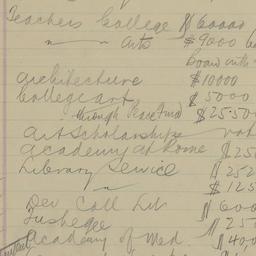 Teachers College $ 60000
" " arts $ 9000
Board with
architecture $ 10000
College art $ 5000
through
$ 25.500
art Scholarships
academy at Rome $ 25
Library Service $ 252
" $ 125
Dev Coll Lib $ 600
Tuskegee $ 25
academy of Med. $ 40,0